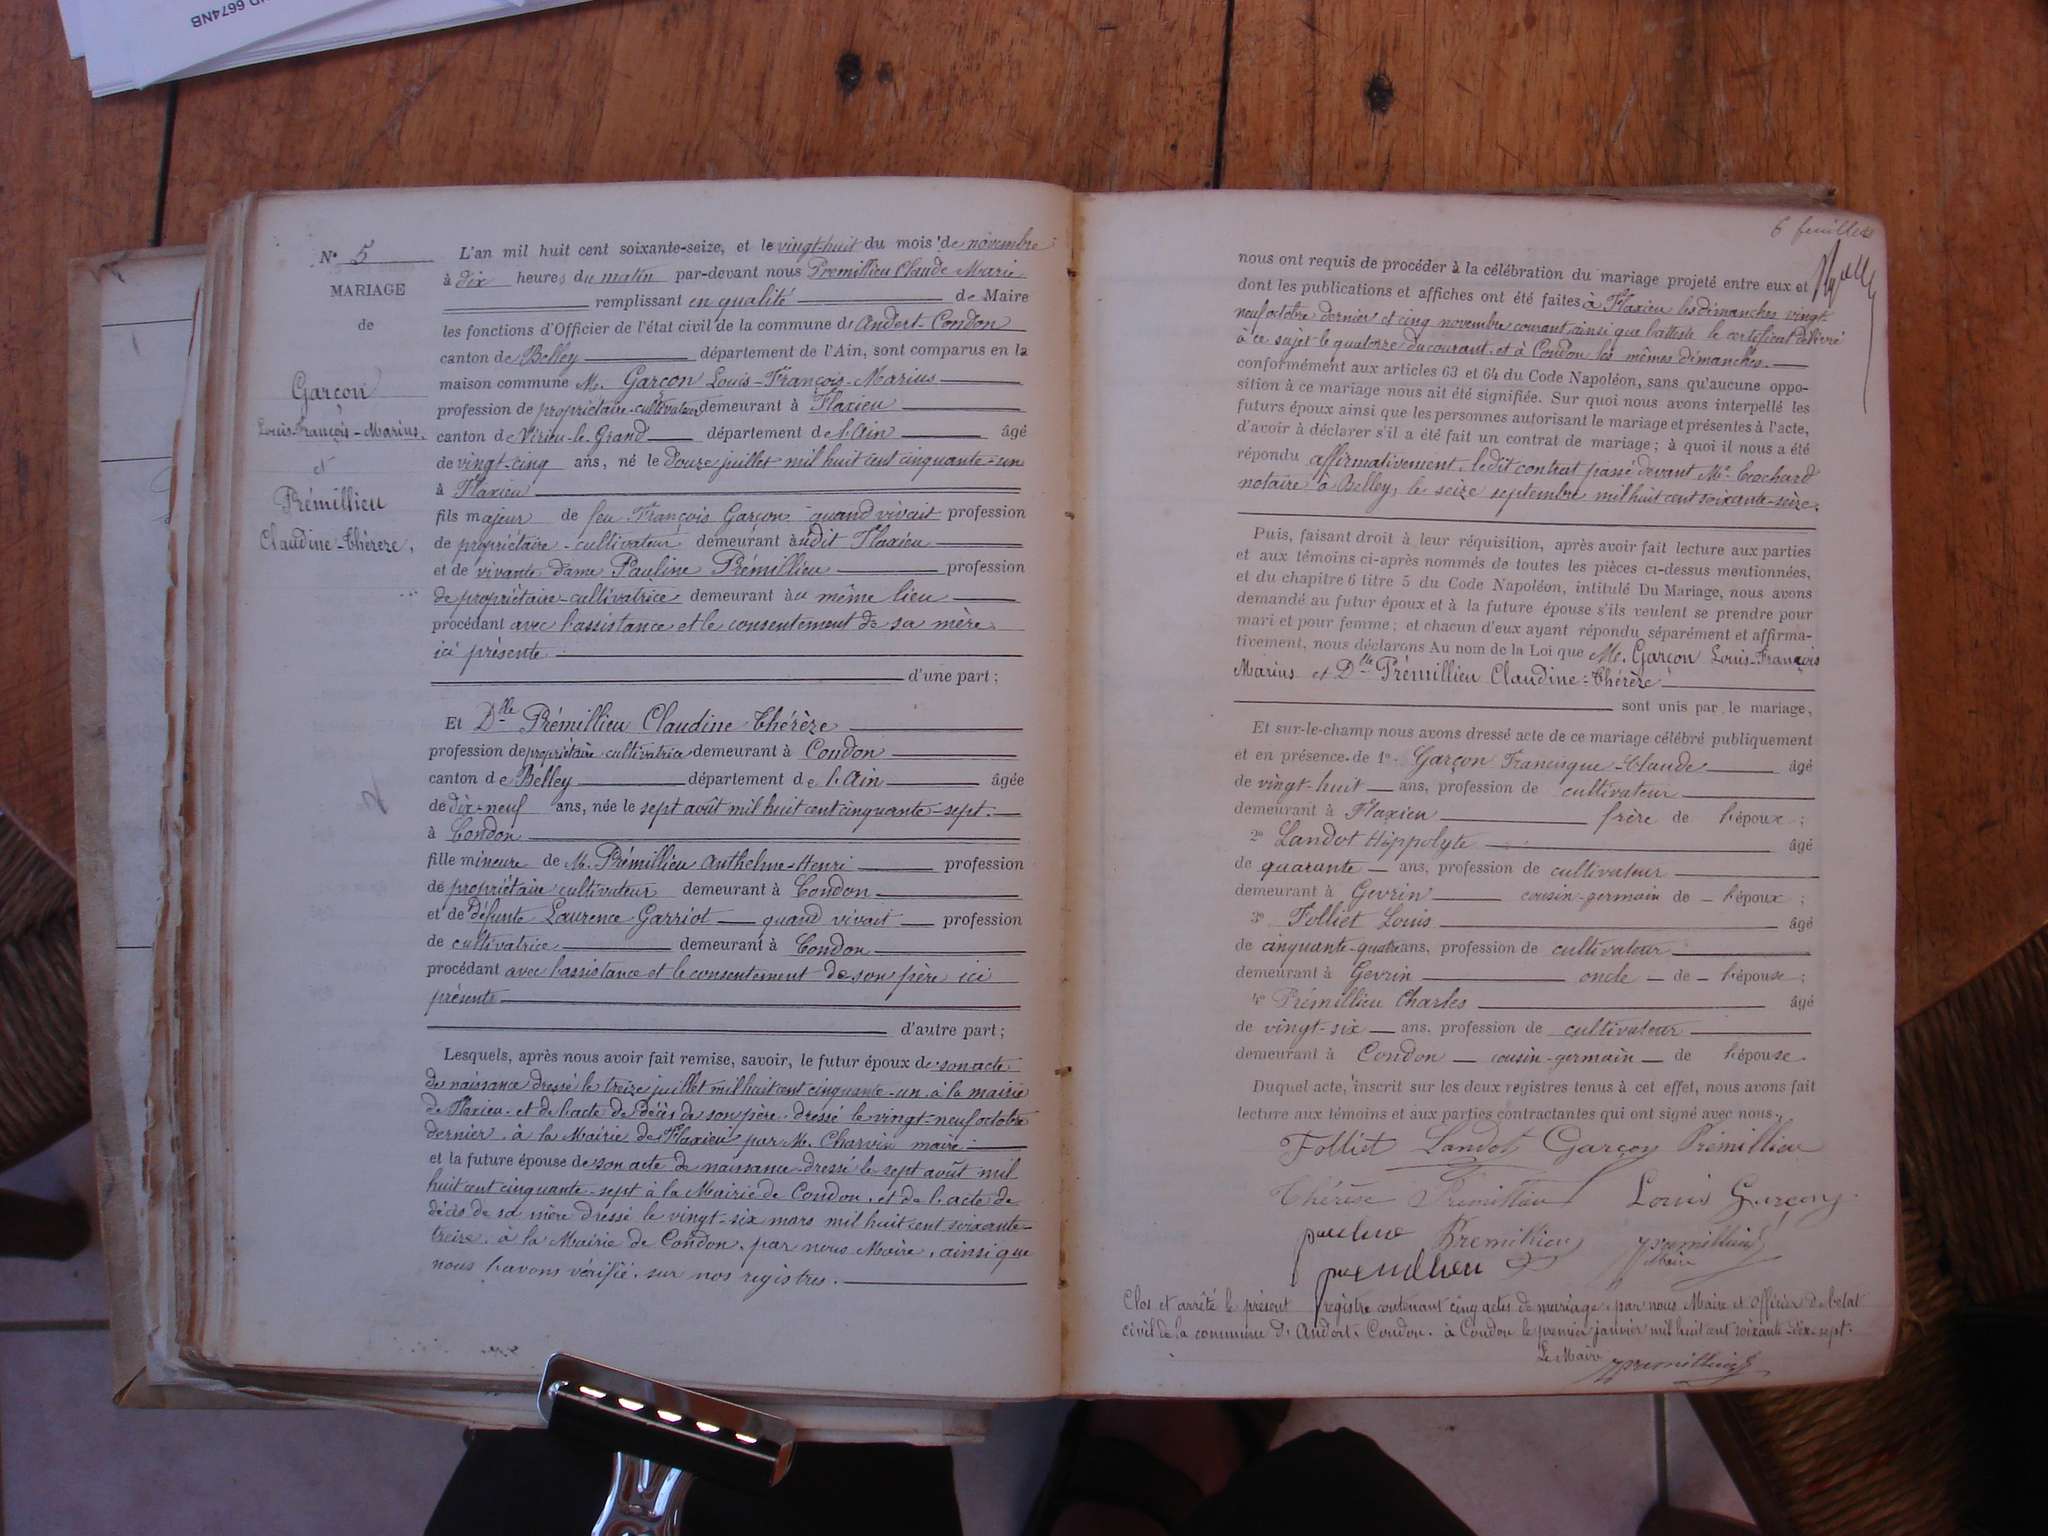 6674NB
N° 5
MARIAGE
de
Garçon
Louis-François-Marius,
et
Prémillieu
Claudine-Thérèze,
L'an mil huit cent soixante-seize, et le vingt-huit du mois de novembre
à dix heures du matin par-devant nous Premillieu Claude Marie
remplissant en qualité de Maire
les fonctions d'Officier de l'état civil de la commune d'Andert-Condon
canton de Belley département de l'Ain, sont comparus en la
maison commune M. Garçon Louis-François-Marius
profession de propriétaire-cultivateur demeurant à Flaxieu
canton de Virieu-le-Grand département de l'Ain âgé
de vingt-cinq ans, né le douze juillet mil huit cent cinquante-un
à Flaxieu
fils majeur de feu François Garçon quand vivait profession
de propriétaire-cultivateur demeurant audit Flaxieu
et de vivante dame Pauline Prémillieu profession
de propriétaire-cultivatrice demeurant au même lieu
procédant avec l'assistance et le consentement de sa mère
ici présente
d'une part;
Et Dlle Prémillieu Claudine Thérèze
profession de propriétaire cultivatrice demeurant à Condon
canton de Belley département de l'Ain âgée
de dix-neuf ans, née le sept août mil huit cent cinquante-sept.
à Condon
fille mineure de M. Prémillieu Anthelme-Henri profession
de propriétaire cultivateur demeurant à Condon
et de défunte Laurence Garriot quand vivait profession
de cultivatrice demeurant à Condon
procédant avec l'assistance et le consentement de son père ici
présente
d'autre part;
Lesquels, après nous avoir fait remise, savoir, le futur époux de son acte
de naissance dressé le treize juillet mil huit cent cinquante-un à la mairie
de Flaxieu. et de l'acte de décès de son père dressé le vingt-neuf octobre
dernier. à la Mairie de Flaxieu par M. Charvin maire
et la future épouse de son acte de naissance dressé le sept août mil
huit cent cinquante-sept à la Mairie de Condon. et de l'acte de
décès de sa mère dressé le vingt-six mars mil huit cent soixante-
treize. à la Mairie de Condon. par nous Maire. ainsi que
nous l'avons vérifié. sur nos registres.
6 feuilles
nous ont requis de procéder à la célébration du mariage projeté entre eux et
dont les publications et affiches ont été faites à Flaxieu les dimanches vingt-
neuf octobre dernier et cinq novembre courant, ainsi que l'atteste le certificat délivré
à ce sujet le quatorze du courant. et à Condon les mêmes dimanches.
conformément aux articles 63 et 64 du Code Napoléon, sans qu'aucune oppo-
sition à ce mariage nous ait été signifiée. Sur quoi nous avons interpellé les
futurs époux ainsi que les personnes autorisant le mariage et présentes à l'acte,
d'avoir à déclarer s'il a été fait un contrat de mariage; à quoi il nous a été
répondu affirmativement. ledit contrat passé devant Me. Cochard
notaire à Belley, le seize septembre mil huit cent soixante-seize.
Puis, faisant droit à leur réquisition, après avoir fait lecture aux parties
et aux témoins ci-après nommés de toutes les pièces ci-dessus mentionnées,
et du chapitre 6 titre 5 du Code Napoléon, intitulé Du Mariage, nous avons
demandé au futur époux et à la future épouse s'ils veulent se prendre pour
mari et pour femme; et chacun d'eux ayant répondu séparément et affirma-
tivement, nous déclarons Au nom de la Loi que M. Garçon Louis-François
Marius et Dlle Prémillieu Claudine-Thérèze
sont unis par le mariage,
Et sur-le-champ nous avons dressé acte de ce mariage célébré publiquement
et en présence de 1° Garçon Francisque-Claude âgé
de vingt-huit ans, profession de cultivateur
demeurant à Flaxieu frère de l'époux;
2° Landot Hippolyte âgé
de quarante ans, profession de cultivateur
demeurant à Gevrin cousin-germain de l'époux;
3° Folliet Louis âgé
de cinquante-quatre ans, profession de cultivateur
demeurant à Gevrin oncle de l'épouse;
4° Prémillieu Charles âgé
de vingt-six ans, profession de cultivateur
demeurant à Condon cousin-germain de l'épouse.
Duquel acte, inscrit sur les deux registres tenus à cet effet, nous avons fait
lecture aux témoins et aux parties contractantes qui ont signé avec nous.
Folliet Landot Garçon Prémillieu
Thérèse Prémillieu Louis Garçon
pauline Premillieu premillieu
Maire
premillieu
Clos et arrêté le présent registre contenant cinq actes de mariage, par nous Maire et officier de l'état
civil de la commune d'Andert-Condon. à Condon le premier janvier mil huit cent soixante-dix-sept.
Le Maire
premillieu